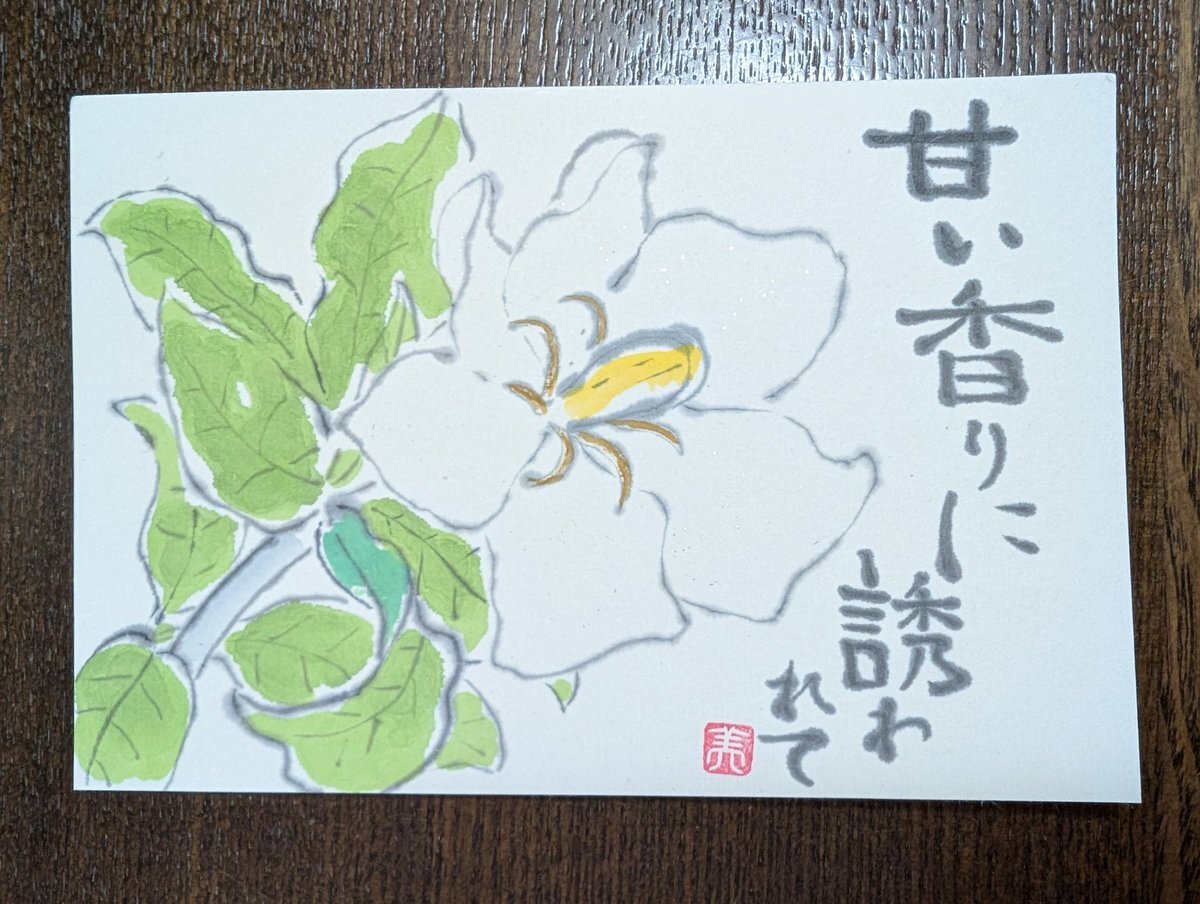 甘い香りに
誘われて
美